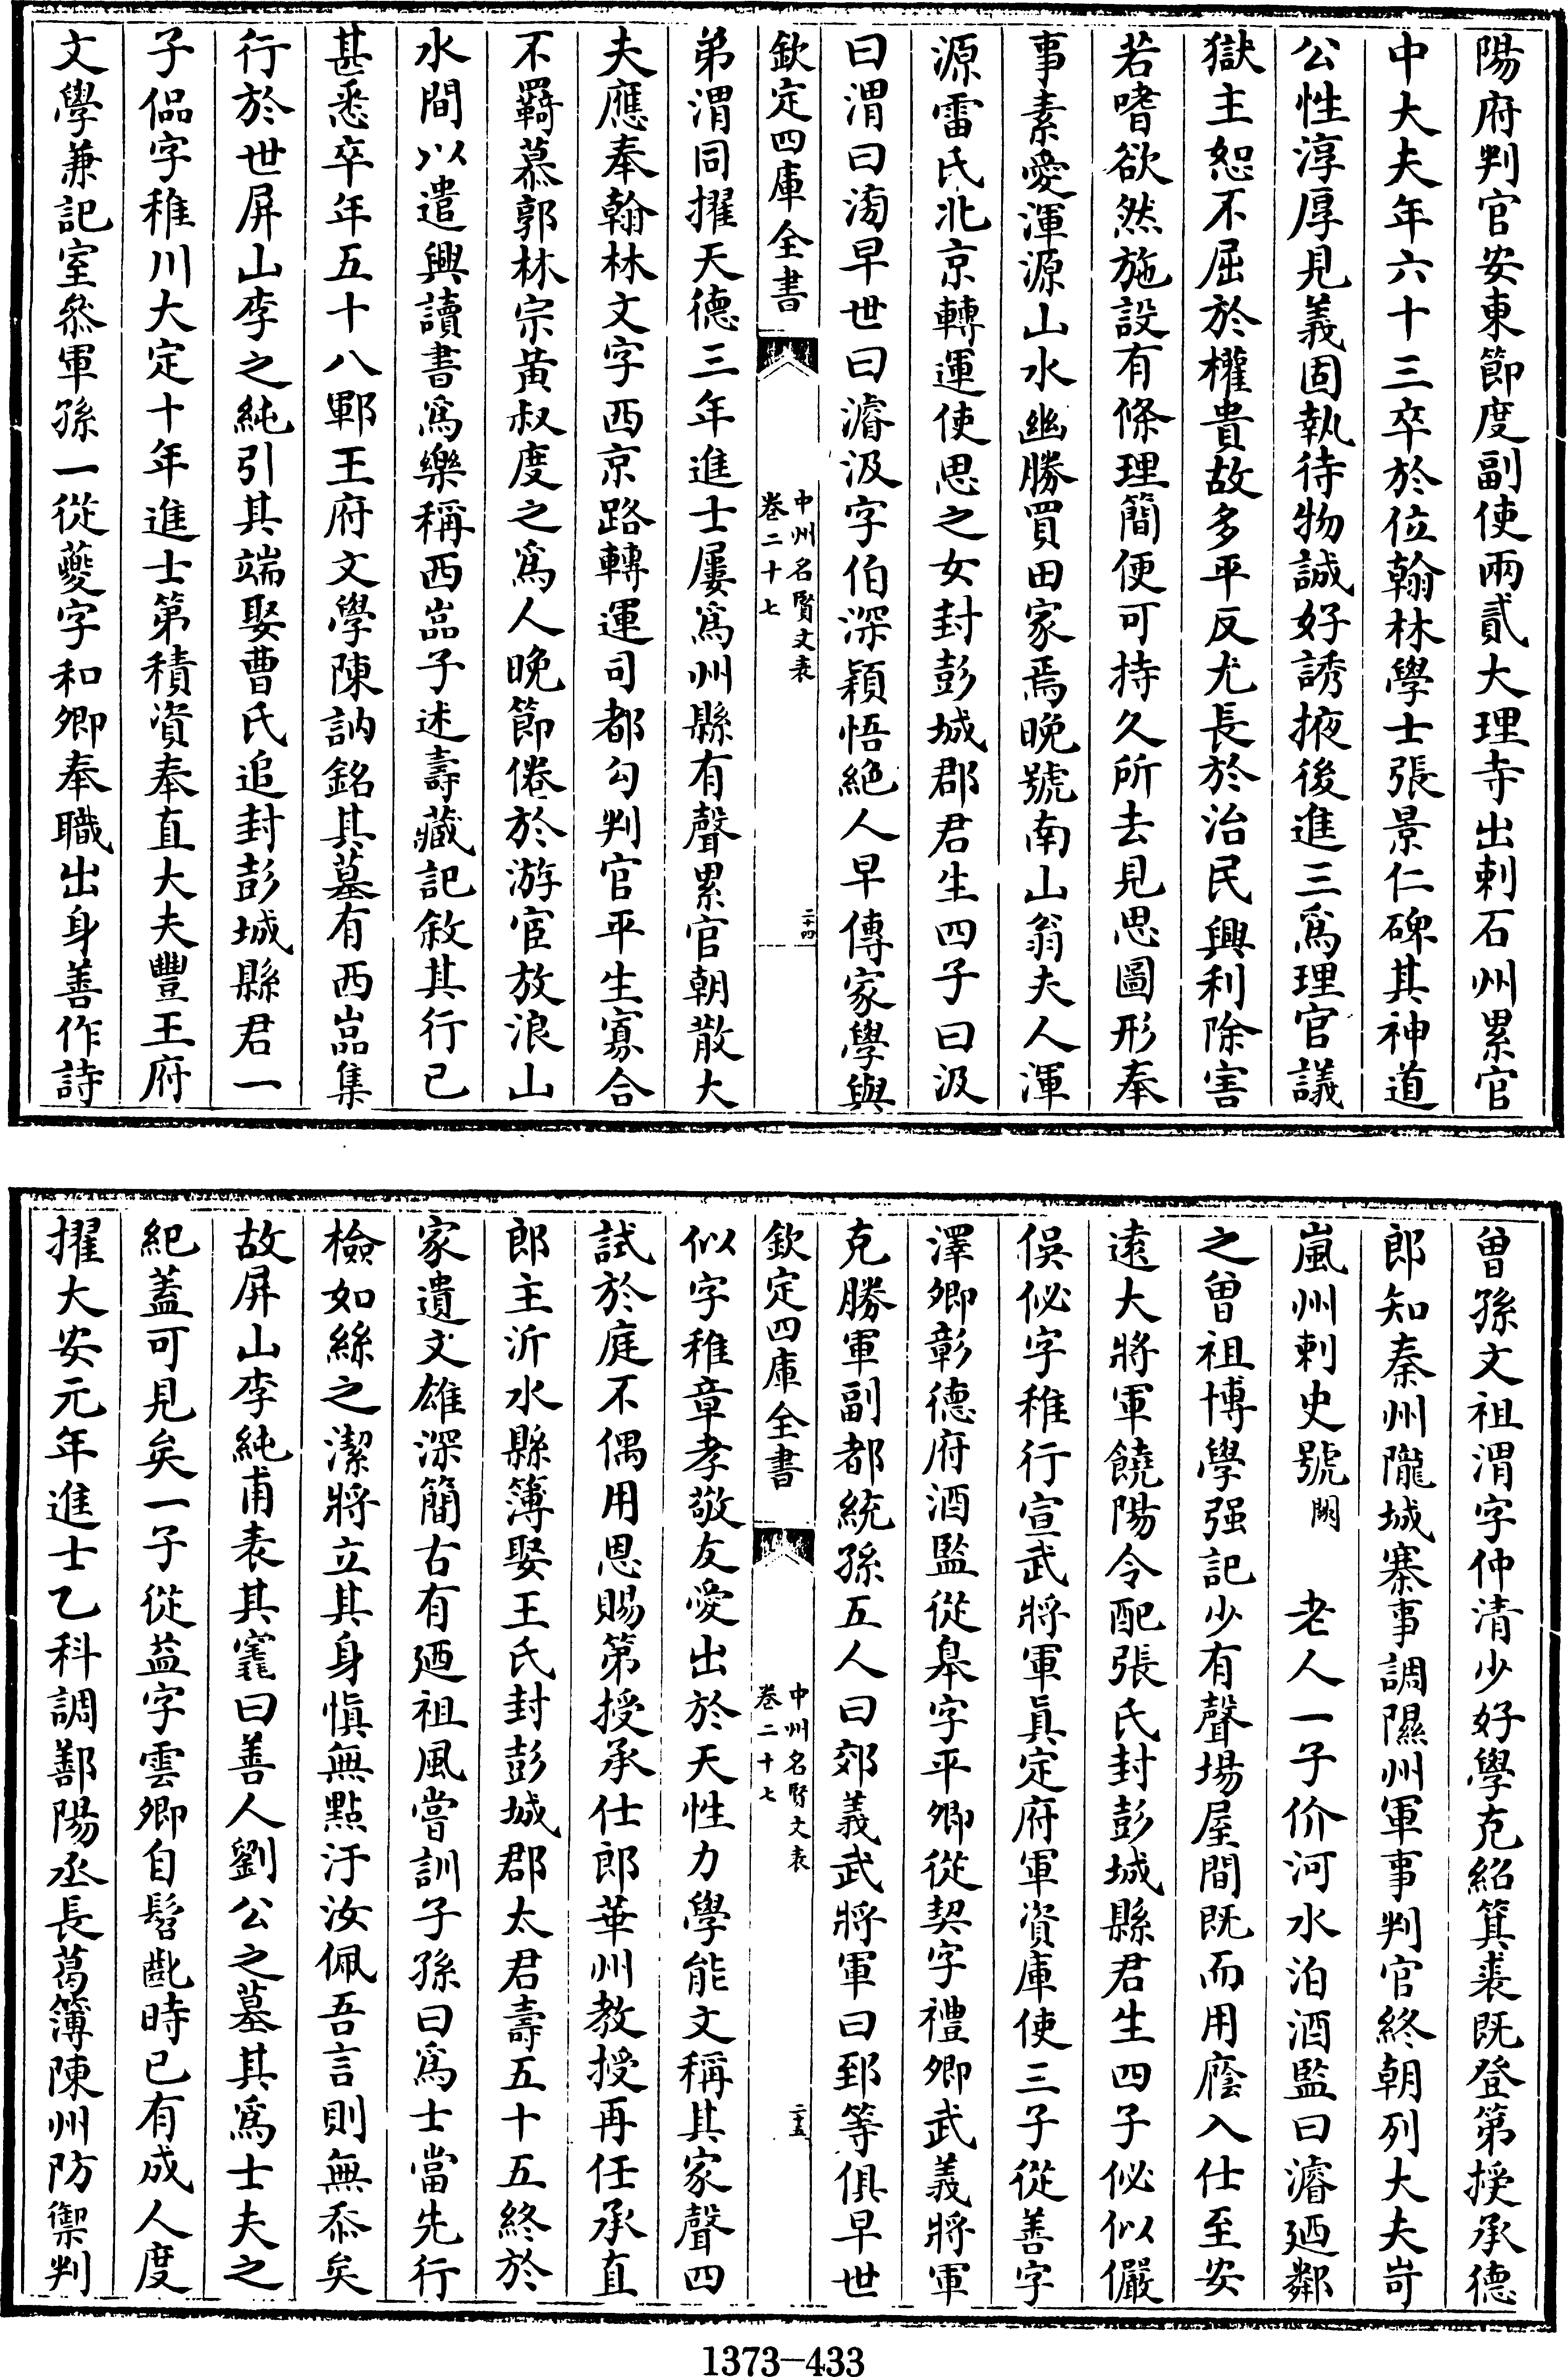 陽府判官安東節度副使兩貳大理寺出刺石州累官
中大夫年六十三卒於位翰林學士張景仁碑其神道
公性淳厚見義固執待物誠好誘掖後進三爲理官議
獄主恕不屈於權貴故多平反尤長於治民興利除害
若嗜欲然施設有條理簡便可持久所去見思圖形奉
事素愛渾源山水幽勝買田家焉晚號南山翁夫人渾
源雷氏北京轉運使思之女封彭城郡君生四子曰汲
曰渭曰洀早世曰濬汲字伯深穎悟絶人早傳家學與
欽定四庫全書
中州名賢文表
卷二十七
二十四
弟渭同擢天德三年進士屢爲州縣有聲累官朝散大
夫應奉翰林文字西京路轉運司都勾判官平生寡合
不羈慕郭林宗黃叔度之爲人晚節倦於游宦放浪山
水間以遣興讀書爲樂稱西嵓子述壽藏記敘其行已
甚悉卒年五十八鄆王府文學陳訥銘其墓有西嵓集
行於世屏山李之純引其端娶曹氏追封彭城縣君一
子偘字稚川大定十年進士第積資奉直大夫豐王府
文學兼記室叅軍孫一從夔字和卿奉職出身善作詩
曾孫文祖渭字仲清少好學克紹箕裘既登第授承德
郎知秦州隴城寨事調隰州軍事判官終朝列大夫岢
嵐州刺史號闕老人一子价河水泊酒監曰濬廼鄰
之曾祖博學强記少有聲場屋間既而用廕入仕至安
遠大將軍饒陽令配張氏封彭城縣君生四子佖似儼
俁佖字稚行宣武將軍眞定府軍資庫使三子從善字
澤卿彰德府酒監從皋字平卿從契字禮卿武義將軍
克勝軍副都統孫五人曰郊義武將軍曰郅等俱早世
欽定四庫全書
中州名賢文表
卷二十七
二十五
似字稚章孝敬友愛出於天性力學能文稱其家聲四
試於庭不偶用恩賜第授承仕郎華州教授再任承直
郎主沂水縣簿娶王氏封彭城郡太君壽五十五終於
家遺文雄深簡古有廼祖風嘗訓子孫曰爲士當先行
檢如絲之潔將立其身愼無點汙汝佩吾言則無忝矣
故屏山李純甫表其竁曰善人劉公之墓其爲士夫之
紀蓋可見矣一子從益字雲卿自髫齔時已有成人度
擢大安元年進士乙科調鄯陽丞長葛簿陳州防禦判
1373-433